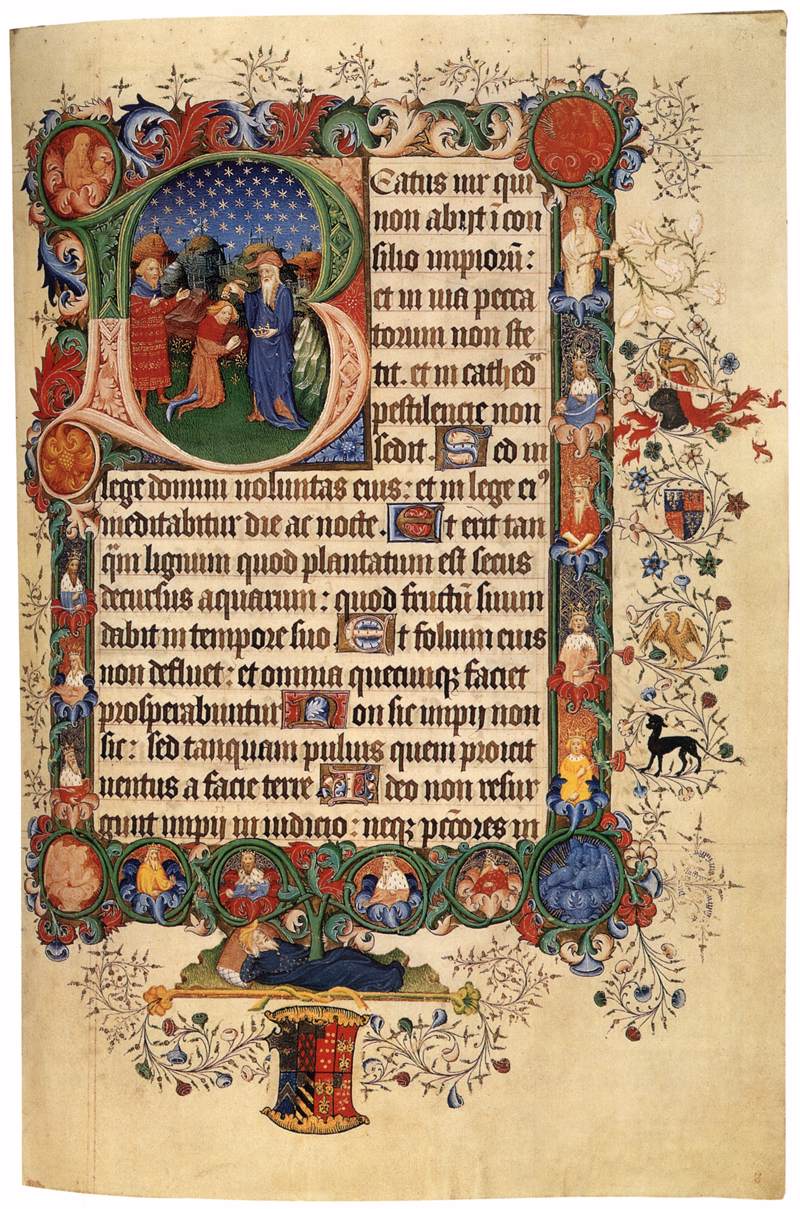 Beatus uir qui
non abijt ī con
silio impiorū:
et in uia pecca
torum non ste
tit. et in cathedᵃ
pestilencie non
sedit. Sed in
lege domini uoluntas eius: et in lege eiꝰ
meditabitur die ac nocte. Et erit tan
qm̄ lignum quod plantatum est secus
decursus aquarum: quod fructū suum
dabit in tempore suo. Et folium eius
non defluet: et omnia quecumqꝫ faciet
prosperabuntur. Non sic impij non
sic: sed tanquam puluis quem proicit
uentus a facie terre. Ideo non resur
gunt impij in iudicio: neqꝫ pccōres in